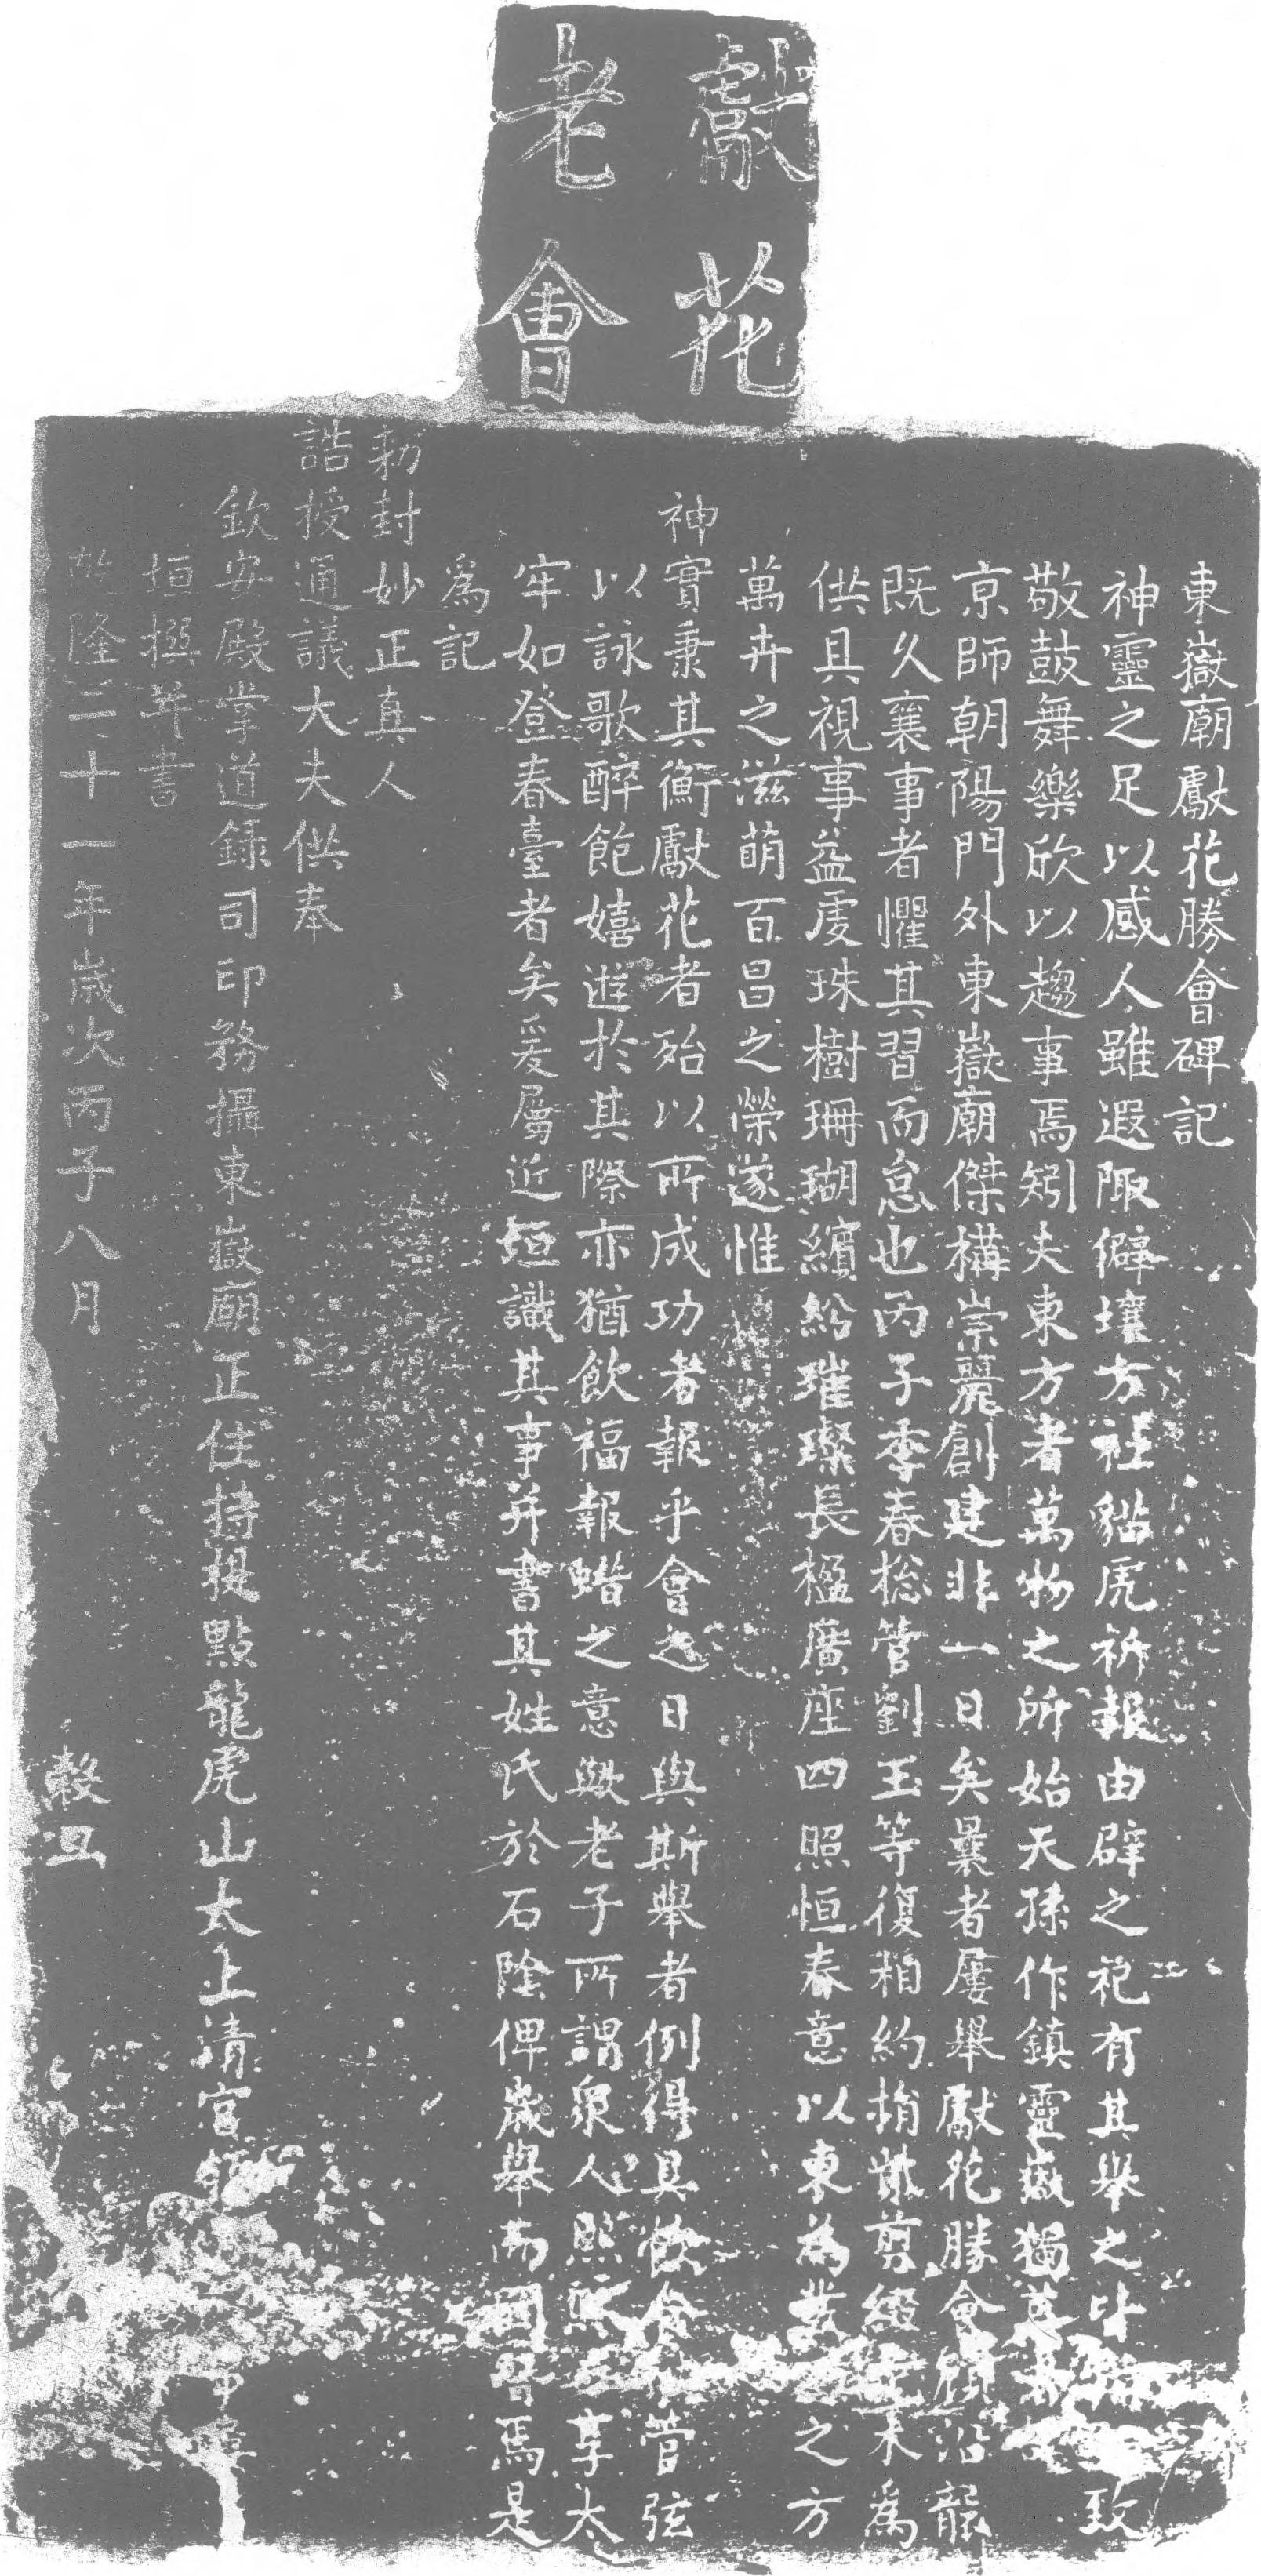 獻花
老會
東嶽廟獻花勝會碑記
神靈之足以感人雖遐陬僻壤方社貓虎祈報由辟之祀有其舉之皆致
敬鼓舞樂欣以趨事焉矧夫東方者萬物之所始天孫作鎮靈嶽獨
京師朝陽門外東嶽廟傑構崇麗創建非一日矣曩者屢舉獻花勝會顧沿龍
既久襄事者懼其習而怠也丙子季春総管劉玉等復相約捐貲剪綴為
供具視事益虔珠樹珊瑚繽紛璀璨長楹廣座四照恒春意以東為之方
萬卉之滋萌百昌之榮遂惟
神實秉其衡獻花者殆以所成功者報乎會之日與斯舉者例得具飲食管弦
以詠歌醉飽嬉遊於其際亦猶飲福報蜡之意歟老子所謂衆人熙熙享太
牢如登春臺者矣爰屬近垣識其事并書其姓氏於石陰俾歲舉而焉是
為記
勅封妙正真人
誥授通議大夫供奉
欽安殿掌道錄司印務攝東嶽廟正住持提點龍虎山太上清宮
垣撰并書
乾隆二十一年歲次丙子八月 穀旦